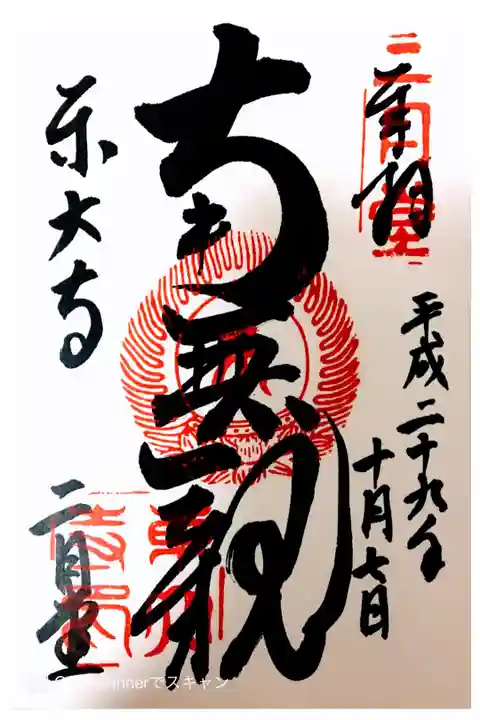 奉拝
平成二十九年
十月七日
南無観
東大寺
二月堂
二月堂
nnerでスキャン